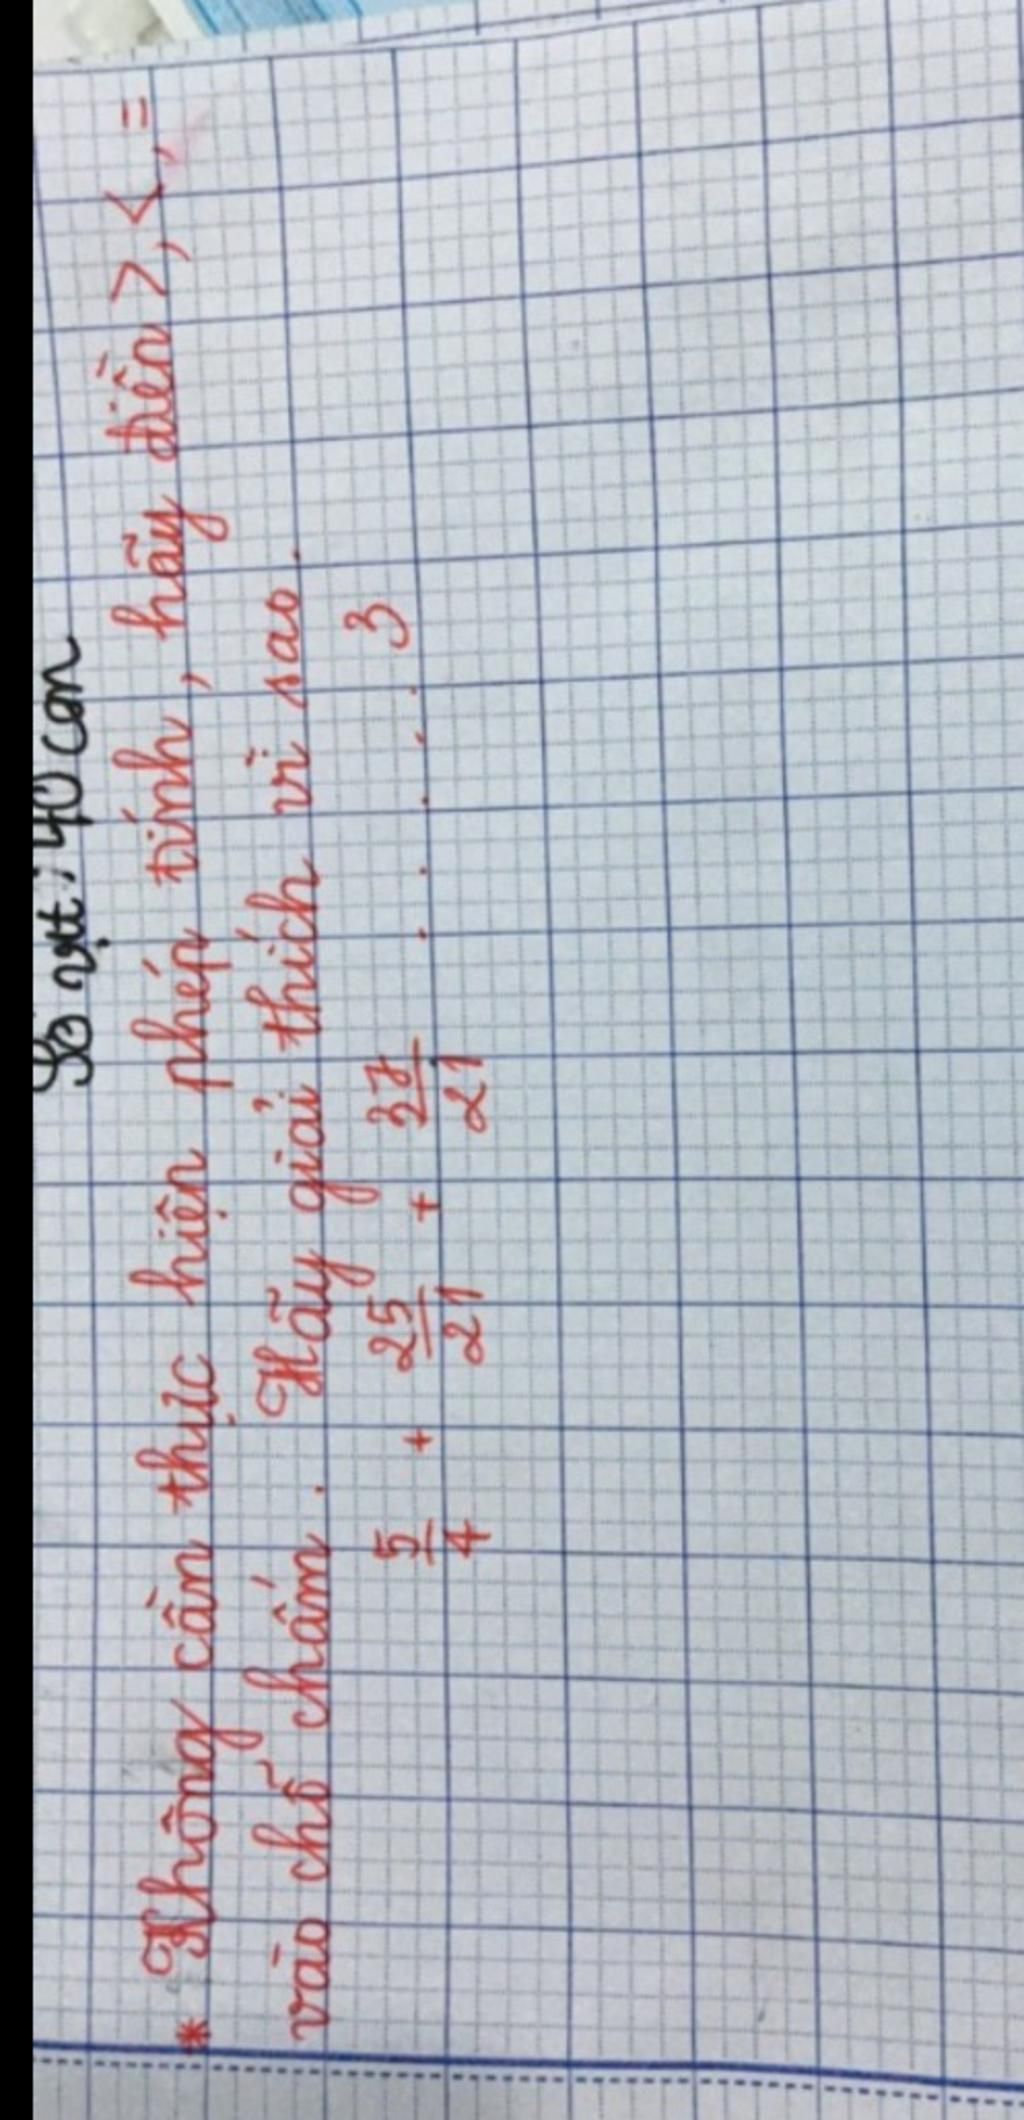 Số vịt: 40 con
* Không cần thực hiện phép tính, hãy điền >, <, =
vào chỗ chấm. Hãy giải thích vì sao.
5/4 + 25/21 + 37/21 ..... 3